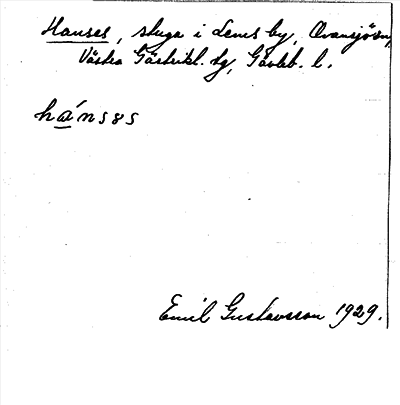 Hanses, stuga i Lems by, Ovansjö sn,
Västra Gästrikl. dg, Gävleb. l.
hánsəs
Emil Gustavsson 1929.